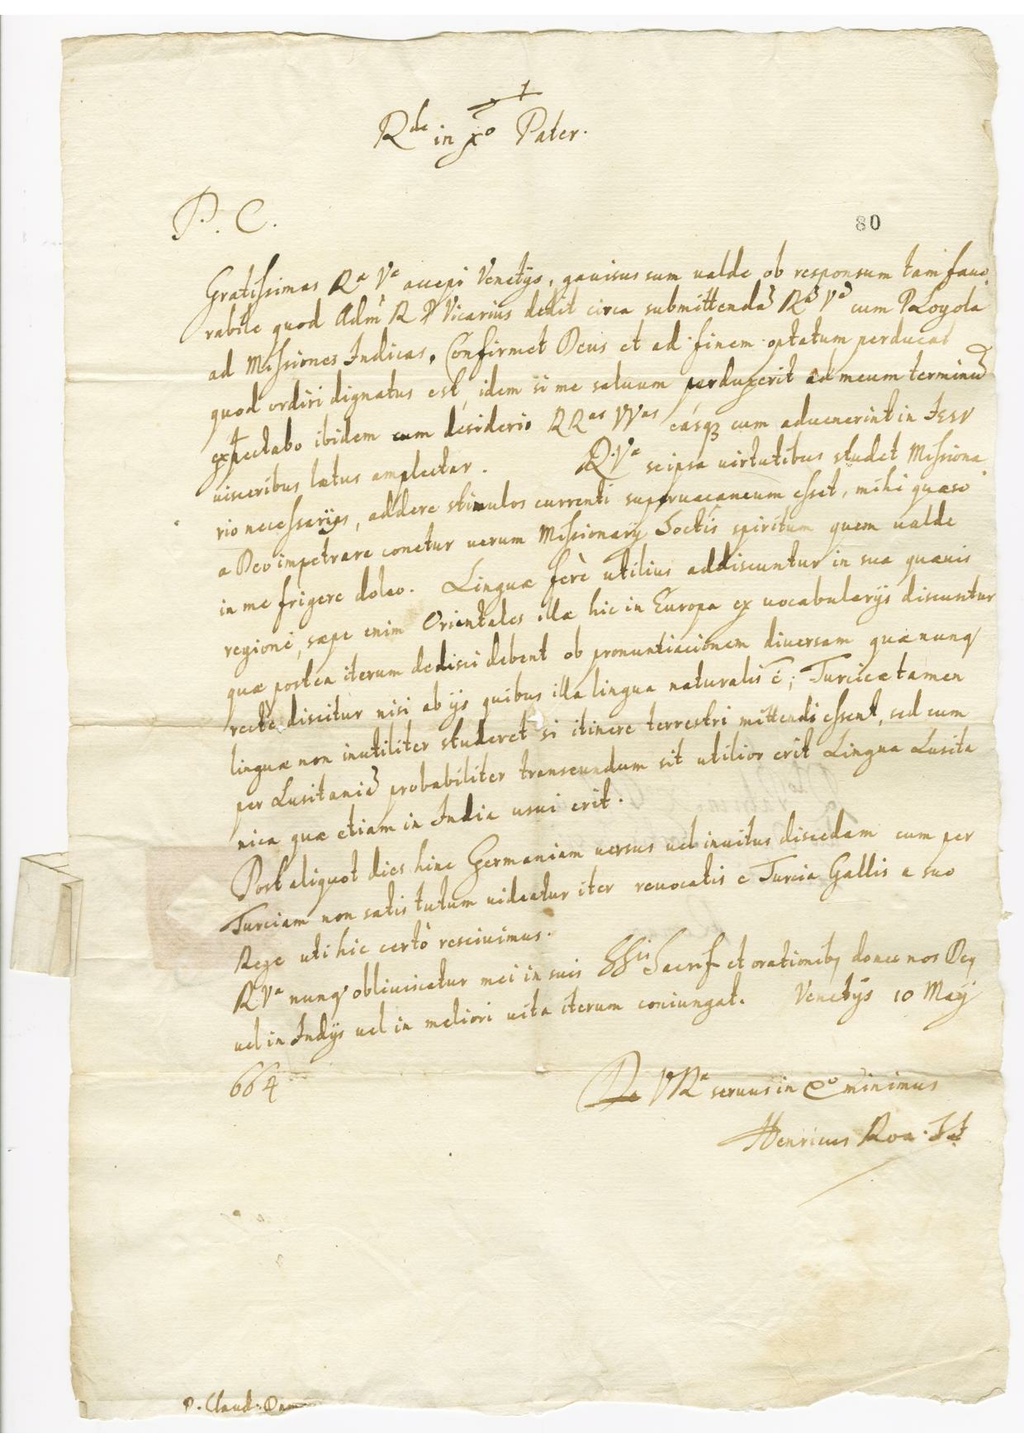 Rde in xo Pater.
P. C.
80
Gratissimas Ra Va accepi Venetijs, gauisus sum ualde ob responsum tam fauo
rabile quod Adm R P Vicarius dedit circa submittenda Ra Va cum P Loyola
ad Missiones Indicas, Confirmet Deus et ad finem optatum perducat
quod ordiri dignatus est, idem si me saluum perduxerit ad meum terminu
expectabo ibidem cum desiderio RRas VVas easq; cum aduenerint in Jesu
uisceribus lætus amplectar. R. Va seipsa uirtutibus studet Missiona
rio necessarijs, addere stimulos currenti superuacaneum esset, mihi quæso
a Deo impetrare conetur uerum Missionarij Soctis spiritum quem ualde
in me frigere doleo. Linguæ ferè utilius addiscuntur in sua quæuis
regione, sæpe enim Orientales illæ hic in Europa ex uocabularijs discuntur
quæ postea iterum dedisci debent ob pronuntiacionem diuersam quæ nunq
recte discitur nisi ab ijs quibus illa lingua naturalis ē; Turcicæ tamen
linguæ non inutiliter studeret si itinere terrestri mittendi essent, sed cum
per Lusitania probabiliter transeundum sit utilior erit Lingua Lusita
nica quæ etiam in India usui erit.
Post aliquot dies hinc Germaniam uersus uel inuitus discedam cum per
Turciam non satis tutum uideatur iter reuocatis e Turcia Gallis a suo
Rege uti hic certò resciuimus.
R Va nunq obliuiscatur mei in suis SSis Sacrif et orationib; donec nos Deq
uel in Indijs uel in meliori uita iterum coniungat. Venetijs 10 Maij
664
Rae VRa seruus in Xo minimus
Henricus Roa. SJ
P. Claud: